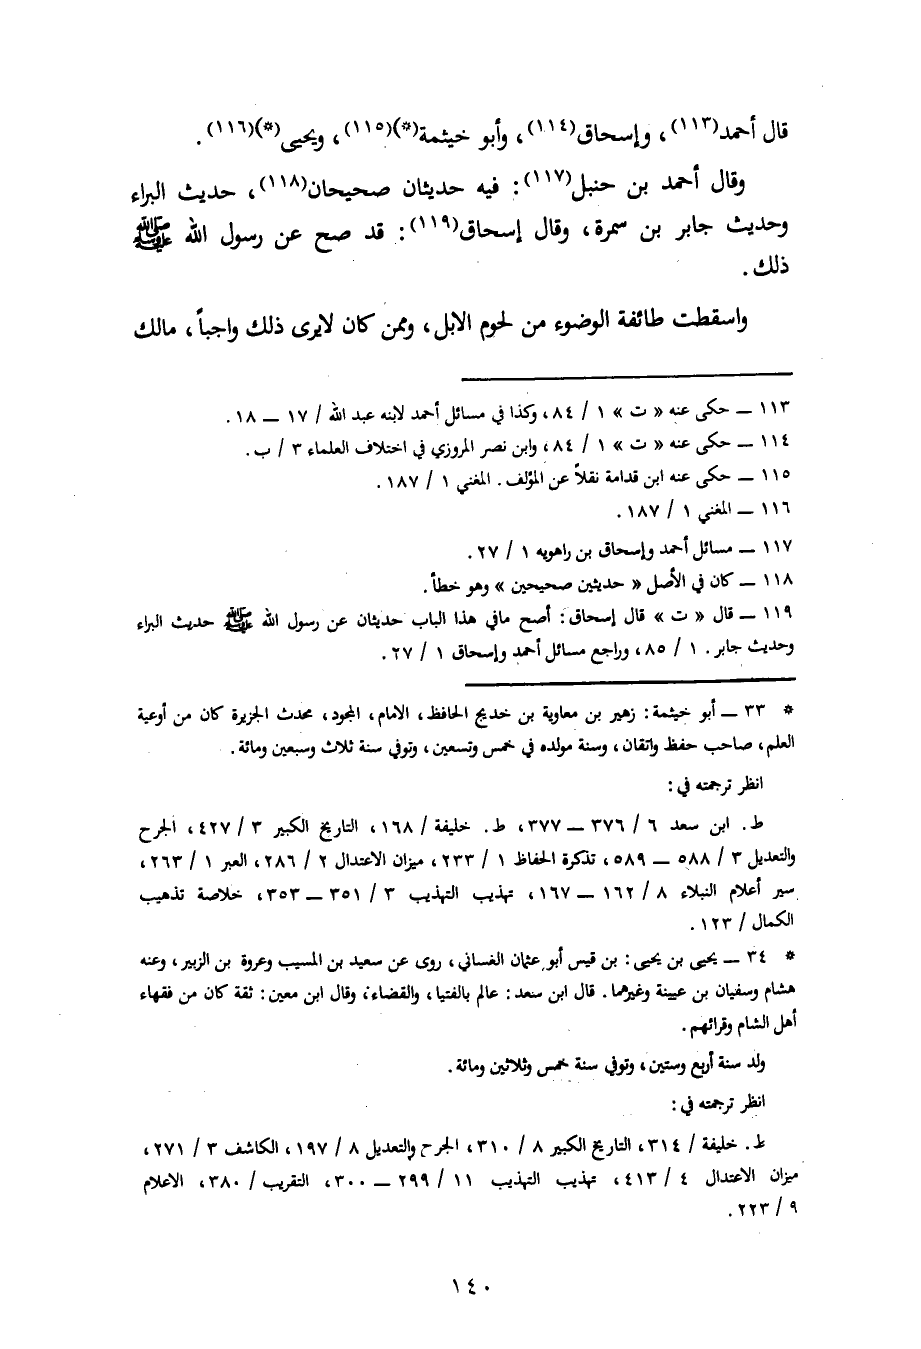 قال أحمد(١١٣)، وإسحاق(١١٤)، وأبو خيثمة(*)(١١٥)، ويحيى(*)(١١٦).
وقال أحمد بن حنبل(١١٧): فيه حديثان صحيحان(١١٨)، حديث البراء
وحديث جابر بن سمرة، وقال إسحاق(١١٩): قد صح عن رسول الله ﷺ
ذلك.
واسقطت طائفة الوضوء من لحوم الابل، وممن كان لايرى ذلك واجباً، مالك
١١٣ ــ حكى عنه « ت » ١ / ٨٤، وكذا في مسائل أحمد لابنه عبد الله / ١٧ ــ ١٨.
١١٤ ــ حكى عنه « ت » ١ / ٨٤، وابن نصر المروزي في اختلاف العلماء ٣ / ب.
١١٥ ــ حكى عنه ابن قدامة نقلاً عن المؤلف. المغني ١ / ١٨٧.
١١٦ ــ المغني ١ / ١٨٧.
١١٧ ــ مسائل أحمد وإسحاق بن راهويه ١ / ٢٧.
١١٨ ــ كان في الأصل « حديثين صحيحين » وهو خطأ.
١١٩ ــ قال « ت » قال إسحاق: أصح مافي هذا الباب حديثان عن رسول الله ﷺ حديث البراء
وحديث جابر. ١ / ٨٥، وراجع مسائل أحمد وإسحاق ١ / ٢٧.
* ٣٣ ــ أبو خيثمة: زهير بن معاوية بن خديج الحافظ، الامام، المجود، محدث الجزيرة كان من أوعية
العلم، صاحب حفظ واتقان، وسنة مولده في خمس وتسعين، وتوفي سنة ثلاث وسبعين ومائة.
انظر ترجمته في:
ط. ابن سعد ٦ / ٣٧٦ ــ ٣٧٧، ط. خليفة / ١٦٨، التاريخ الكبير ٣ / ٤٢٧، الجرح
والتعديل ٣ / ٥٨٨ ــ ٥٨٩، تذكرة الحفاظ ١ / ٢٣٣، ميزان الاعتدال ٢ / ٢٨٦، العبر ١ / ٢٦٣،
سير أعلام النبلاء ٨ / ١٦٢ ــ ١٦٧، تهذيب التهذيب ٣ / ٣٥١ ــ ٣٥٣، خلاصة تذهيب
الكمال / ١٢٣.
* ٣٤ ــ يحيى بن يحيى: بن قيس أبو عثمان الغساني، روى عن سعيد بن المسيب وعروة بن الزبير، وعنه
هشام وسفيان بن عيينة وغيرهما. قال ابن سعد: عالم بالفتيا، والقضاء، وقال ابن معين: ثقة كان من فقهاء
أهل الشام وقرائهم.
ولد سنة أربع وستين، وتوفي سنة خمس وثلاثين ومائة.
انظر ترجمته في:
ط. خليفة / ٣١٤، التاريخ الكبير ٨ / ٣١٠، الجرح والتعديل ٨ / ١٩٧، الكاشف ٣ / ٢٧١،
ميزان الاعتدال ٤ / ٤١٣، تهذيب التهذيب ١١ / ٢٩٩ ــ ٣٠٠، التقريب / ٣٨٠، الاعلام
٩ / ٢٢٣.
١٤٠